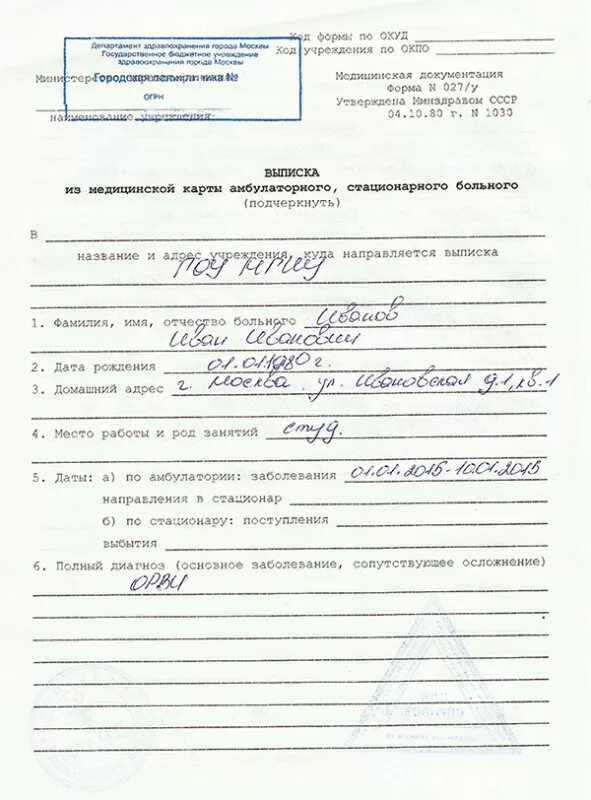 Код формы по ОКУД
Код учреждения по ОКПО
Департамент здравоохранения города Москвы
Государственное бюджетное учреждение
здравоохранения города Москвы
Городская поликлиника №
ОГРН
наименование учреждения
Медицинская документация
Форма N 027/у
Утверждена Минздравом СССР
04.10.80 г. N 1030
ВЫПИСКА
из медицинской карты амбулаторного, стационарного больного
(подчеркнуть)
В
название и адрес учреждения, куда направляется выписка
ГОУ МГИУ
1. Фамилия, имя, отчество больного Иванов
Иван Иванович
2. Дата рождения 01.01.1980 г.
3. Домашний адрес г. Москва, ул. Ивановская д.1, кв.1
4. Место работы и род занятий студ.
5. Даты: а) по амбулатории: заболевания 01.01.2015-10.01.2015
направления в стационар
б) по стационару: поступления
выбытия
6. Полный диагноз (основное заболевание, сопутствующее осложнение)
ОРВИ